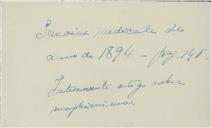 Semaine medicale do
anno de 1894 – pag. 148.
Interessante artigo sobre
morphinismo.